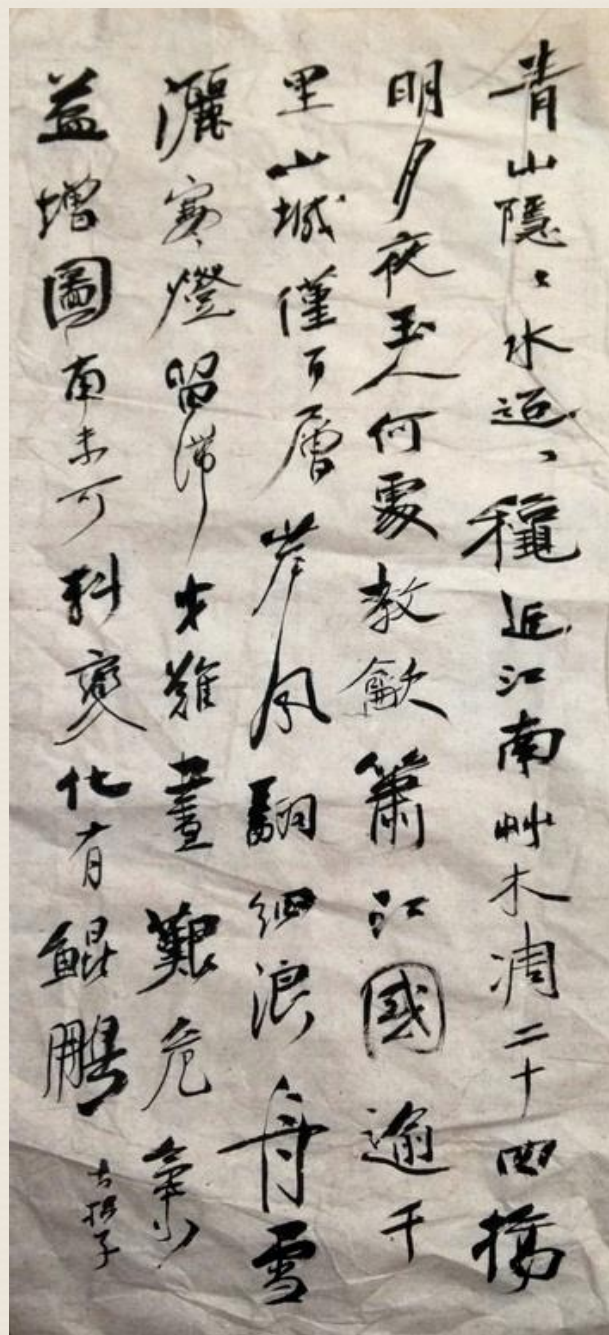 青山隱々水迢々穐近江南艸木凋二十四橋
明月夜玉人何處教龡簫江國逾千
里山城僅百層岸風翻細浪舟雪
灑寒燈留滯才難盡艱危氣
益增圖南未可料變化有鯤鵬